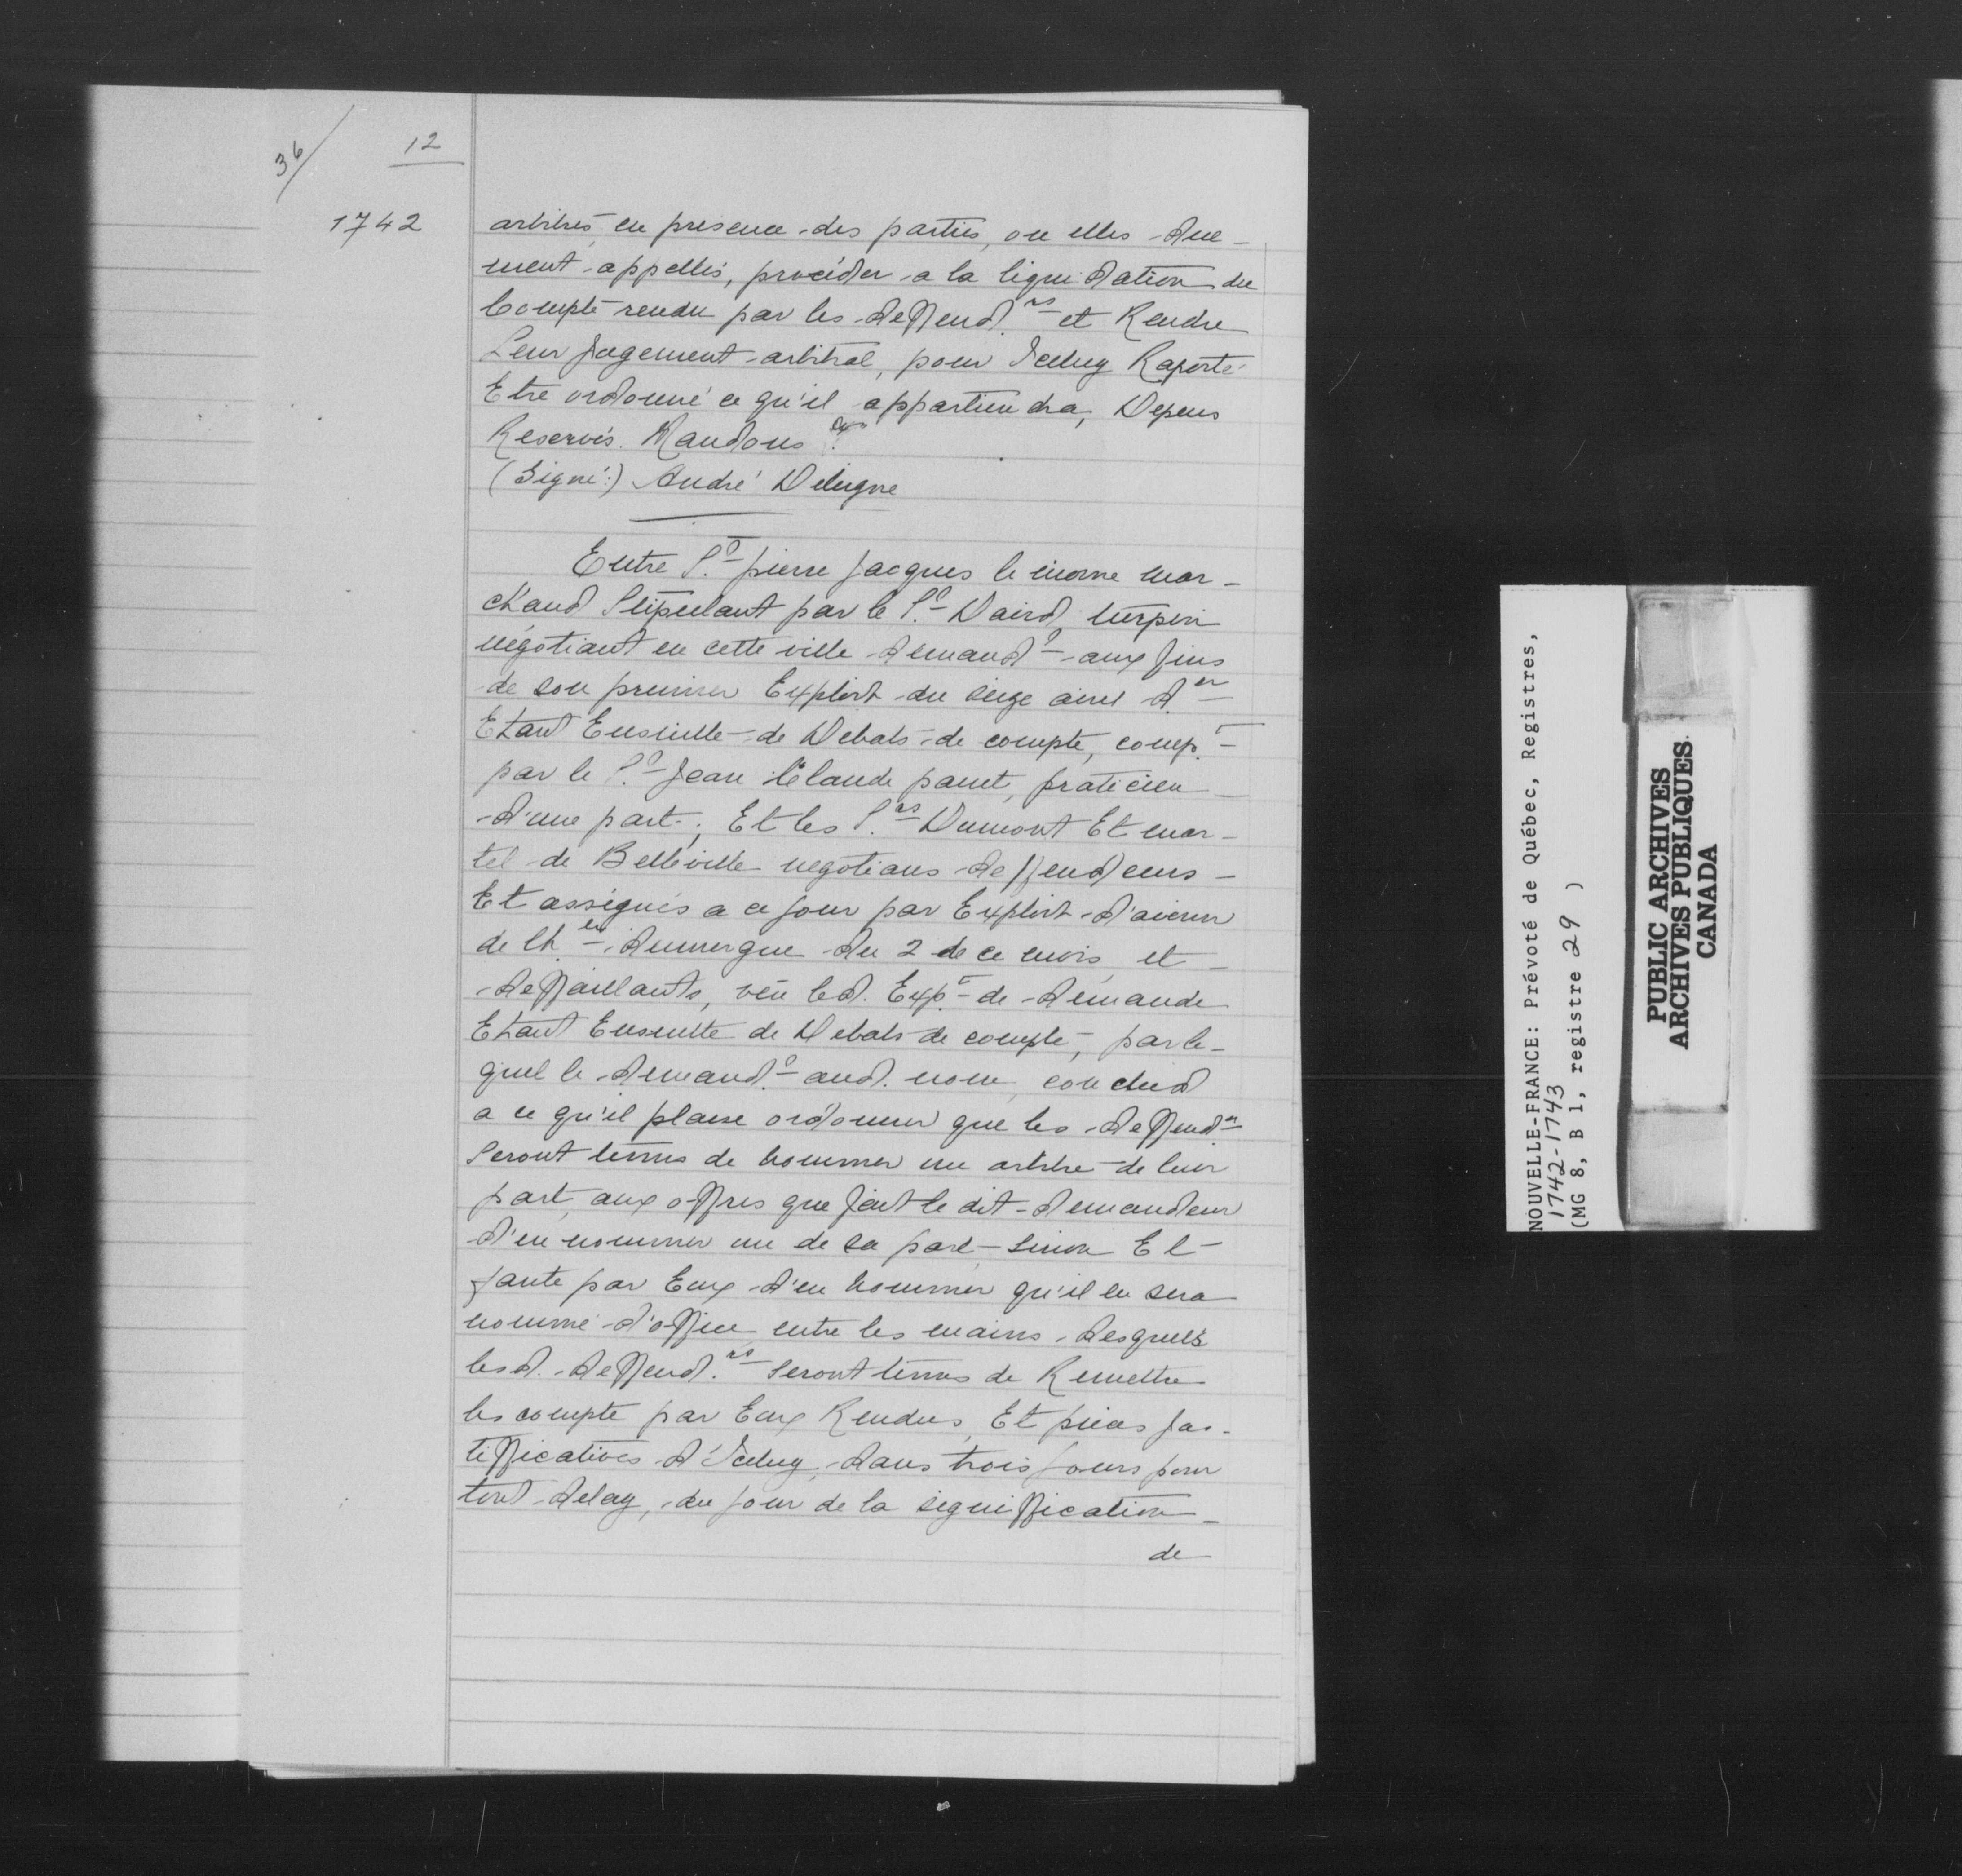 36/
12
1742
arbitres, en presence des parties, ou elles due-
ment appellés, procéder a la liquidation du
Compte rendu par les deffend.rs et Rendre
Leur Jugement arbitral, pour Iceluy Raporté
Etre ordonné ce qu'il appartiendra, Depens
Reservés. Mandons &c.
(Signé:) André Deleigne
Entre S.r pierre Jacques le morne mar-
chand Stipulant par le S.r David turpin
négotiant en cette ville demand.r aux fins
de son premier Exploit du seize avril d.er
Etant Ensuitte de Debats de compte, comp.t
par le S.r Jean Claude panet, praticien
d'une part; Et les S.rs Dumont Et mar-
tel de Belleville negotians deffendeurs
Et assignés a ce jour par Exploit d'
de ch.er dumergue du 2 de ce mois et
deffaillants, vêu led. Exp.t de demande
Etant Ensuitte de Debats de compte, par le-
quel le demand.r aud. nom conclud
a ce qu'il plaise ordonner que les deffend.rs
Seront tenus de nommer un arbitre de leur
part, aux offres que fait le dit demandeur
d'en nommer un de sa part sinon Et
faute par Eux d'en nommer qu'il en sera
nommé d'office entre les mains desquels
lesd. deffend.rs Seront tenus de Remettre
les compte par Eux Rendus, Et pieces jus-
tifficatives d'Iceluy, dans trois jours pour
tout delay, du jour de la signiffication
de
NOUVELLE-FRANCE: Prévôté de Québec, Registres,
1742-1743
(MG 8, B 1, registre 29 )
PUBLIC ARCHIVES
ARCHIVES PUBLIQUES
CANADA